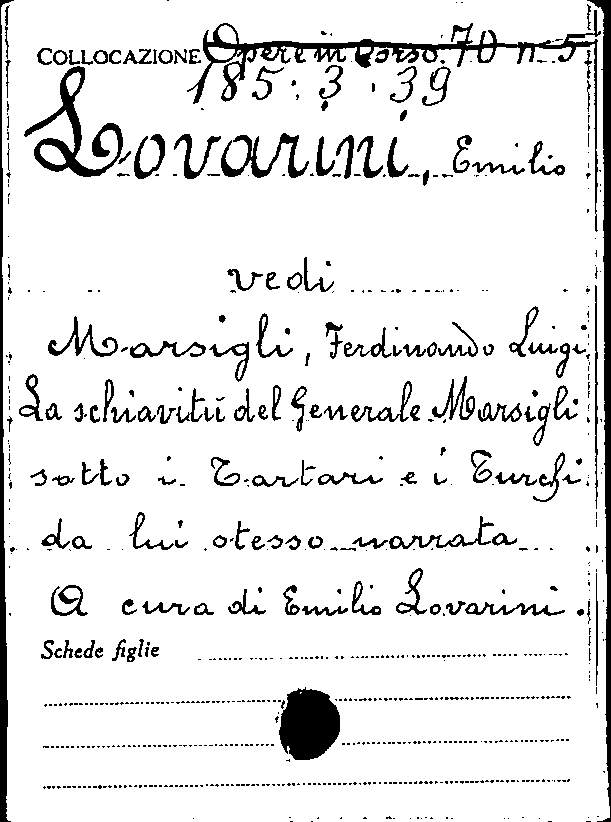 COLLOCAZIONE Opere in Corso. 70 n. 5
185. 3. 39
Lovarini, Emilio
vedi
Marsigli, Ferdinando Luigi
La schiavitù del Generale Marsigli
sotto i Tartari e i Turchi
da lui stesso narrata
A cura di Emilio Lovarini.
Schede figlie